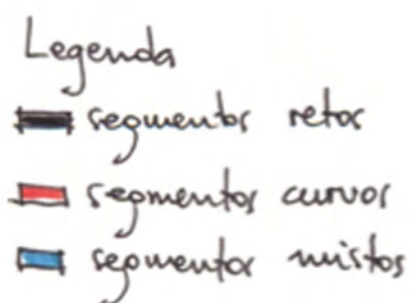 Legenda
segmentos retos
segmentos curvos
segmentos mistos